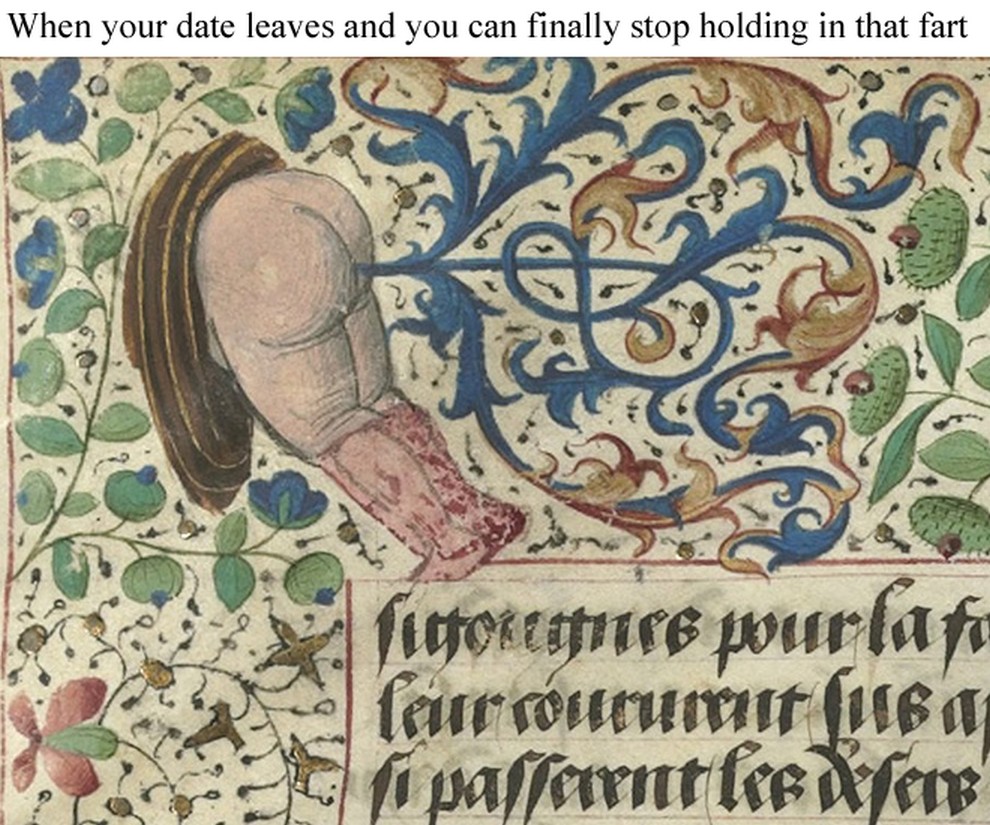 When your date leaves and you can finally stop holding in that fart
pour la
leur coururent sus
si passerent les desers